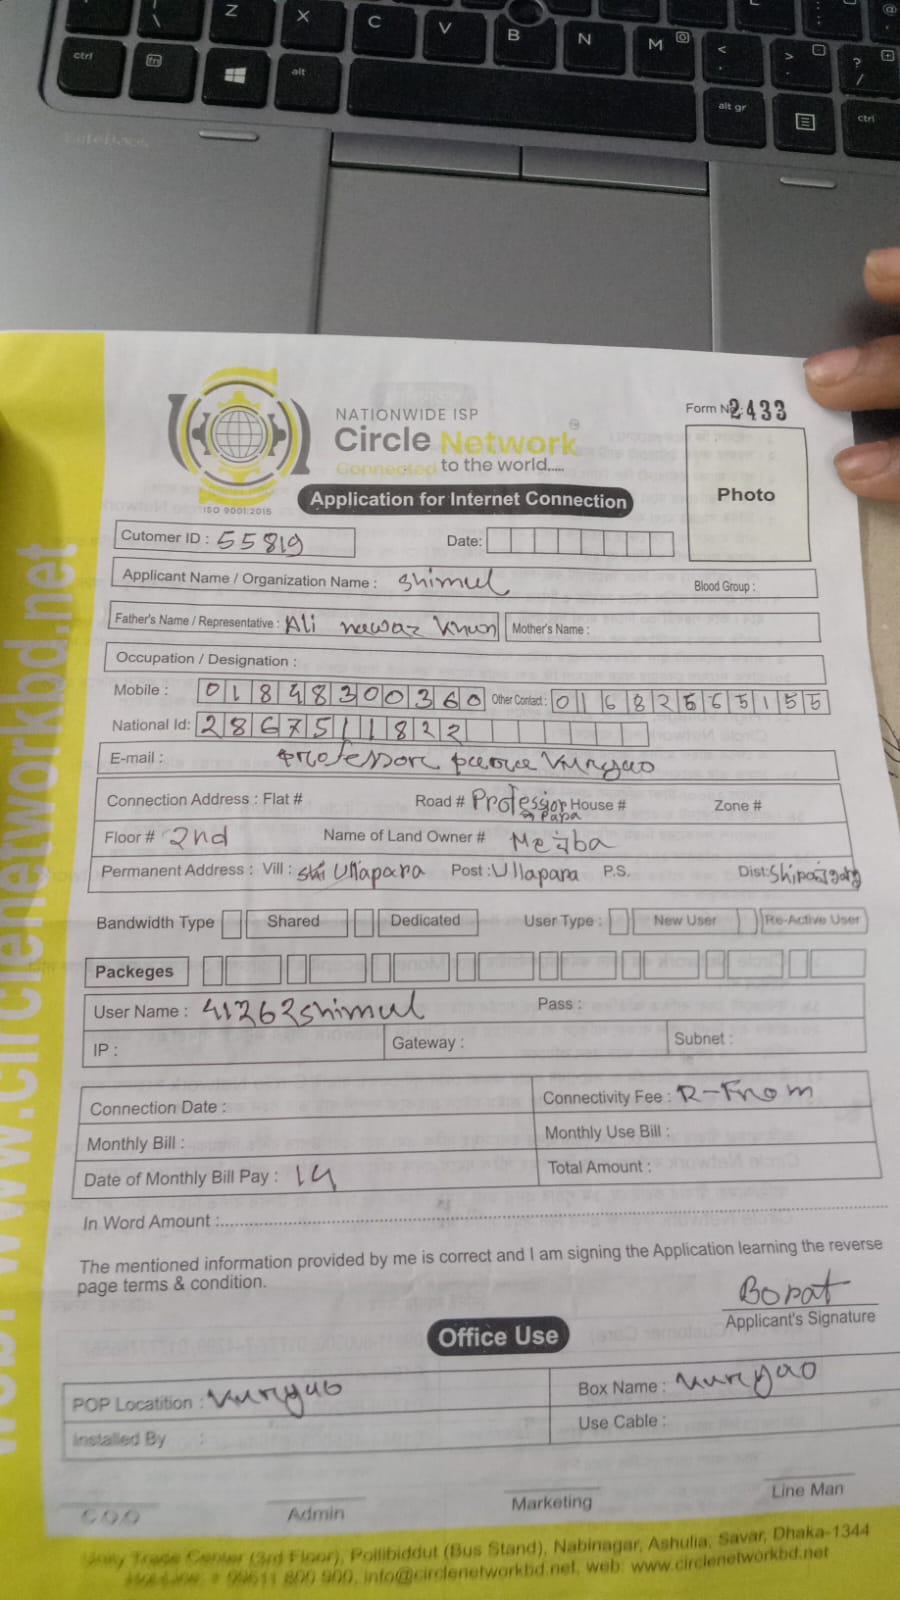 Z X C V B N M < , > . ? /
ctrl fn alt alt gr ctrl
www.circlenetworkbd.net
NATIONWIDE ISP
Form No. 2433
Circle Network
Connected to the world.....
ISO 9001:2015
Application for Internet Connection
Photo
Cutomer ID : 55819 Date:
Applicant Name / Organization Name : Shimul Blood Group :
Father's Name / Representative : Ali nawaz Khan Mother's Name :
Occupation / Designation :
Mobile : 01848300360 Other Contact : 01682565155
National Id: 2867511822
E-mail : professor para
Connection Address : Flat # Road # Professor Para House # Zone #
Floor # 2nd Name of Land Owner #
Permanent Address : Vill : Ullapara Post : Ullapara P.S. Dist:
Bandwidth Type Shared Dedicated User Type : New User Re-Active User
Packeges
User Name : 41262shimul Pass :
IP : Gateway : Subnet :
Connection Date : Connectivity Fee : R-From
Monthly Bill : Monthly Use Bill :
Date of Monthly Bill Pay : 14 Total Amount :
In Word Amount :
The mentioned information provided by me is correct and I am signing the Application learning the reverse
page terms & condition.
Borat
Applicant's Signature
Office Use
POP Locatition : Box Name :
Installed By : Use Cable :
COO Admin Marketing Line Man
Unity Trade Center (3rd Floor), Pollibiddut (Bus Stand), Nabinagar, Ashulia, Savar, Dhaka-1344
09611 800 900, info@circlenetworkbd.net, web: www.circlenetworkbd.net